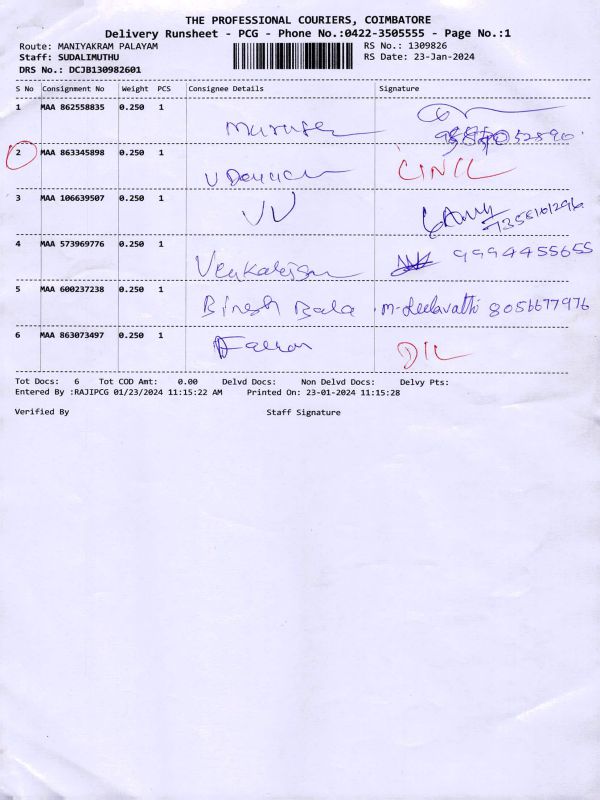 THE PROFESSIONAL COURIERS, COIMBATORE
Delivery Runsheet - PCG - Phone No.:0422-3505555 - Page No.:1
Route: MANIYAKRAM PALAYAM RS No.: 1309826
Staff: SUDALIMUTHU RS Date: 23-Jan-2024
DRS No.: DCJB130982601
S No Consignment No Weight PCS Consignee Details Signature
1 MAA 862558835 0.250 1
2 MAA 863345898 0.250 1
3 MAA 106639507 0.250 1 VV
4 MAA 573969776 0.250 1 9994455655
5 MAA 600237238 0.250 1 Binesh Bala M-Leelavathi 8056677976
6 MAA 863073497 0.250 1 DIL
Tot Docs: 6 Tot COD Amt: 0.00 Delvd Docs: Non Delvd Docs: Delvy Pts:
Entered By :RAJIPCG 01/23/2024 11:15:22 AM Printed On: 23-01-2024 11:15:28
Verified By Staff Signature